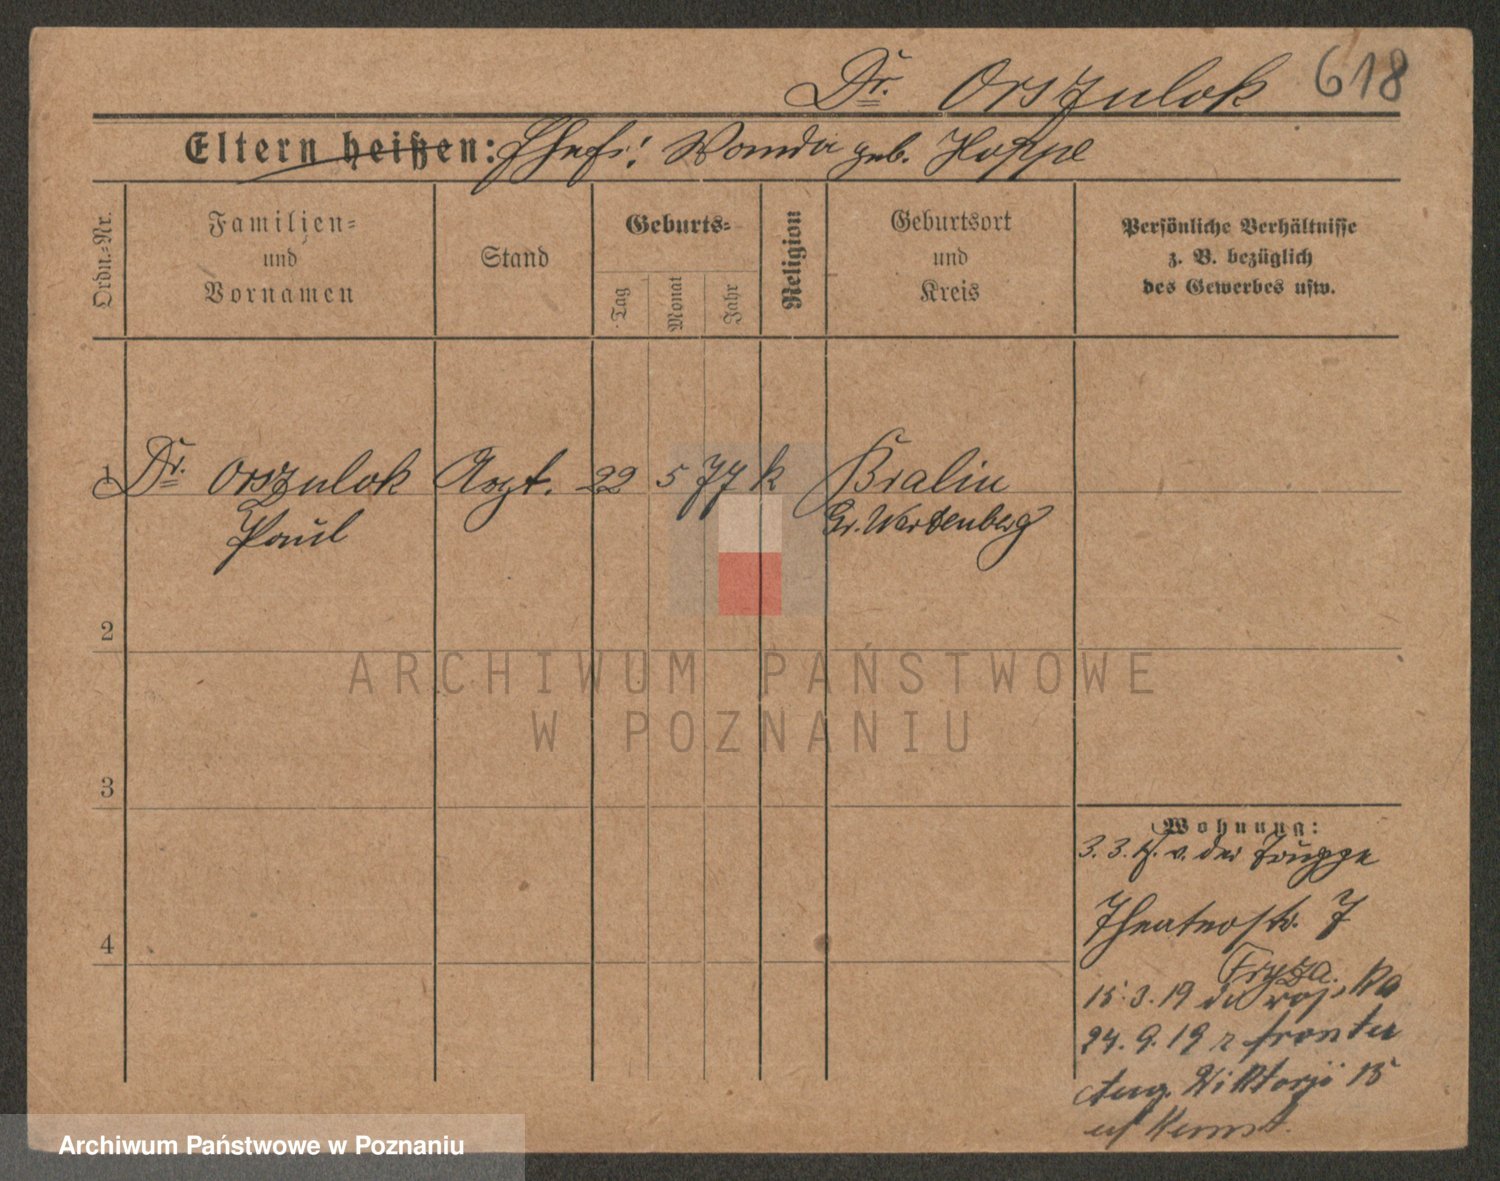 Dr. Orszulok 618
Eltern heißen: Ehefr: Wanda geb. Hoppe
Ordn.-Nr.
Familien-
und
Vornamen
Stand
Geburts-
Tag
Monat
Jahr
Religion
Geburtsort
und
Kreis
Persönliche Verhältnisse
z. B. bezüglich
des Gewerbes usw.
1 Dr. Orszulok Arzt. 22 5 77 k Bralin
Paul Gr. Wartenberg
2
3
4
Wohnung:
3. 3. v. der Truppe
Theaterstr. 7
Fryza.
15.3.19 do wojska
24.9.19 z frontu
Aug. Wiktorji 15
ARCHIWUM PAŃSTWOWE
W POZNANIU
Archiwum Państwowe w Poznaniu